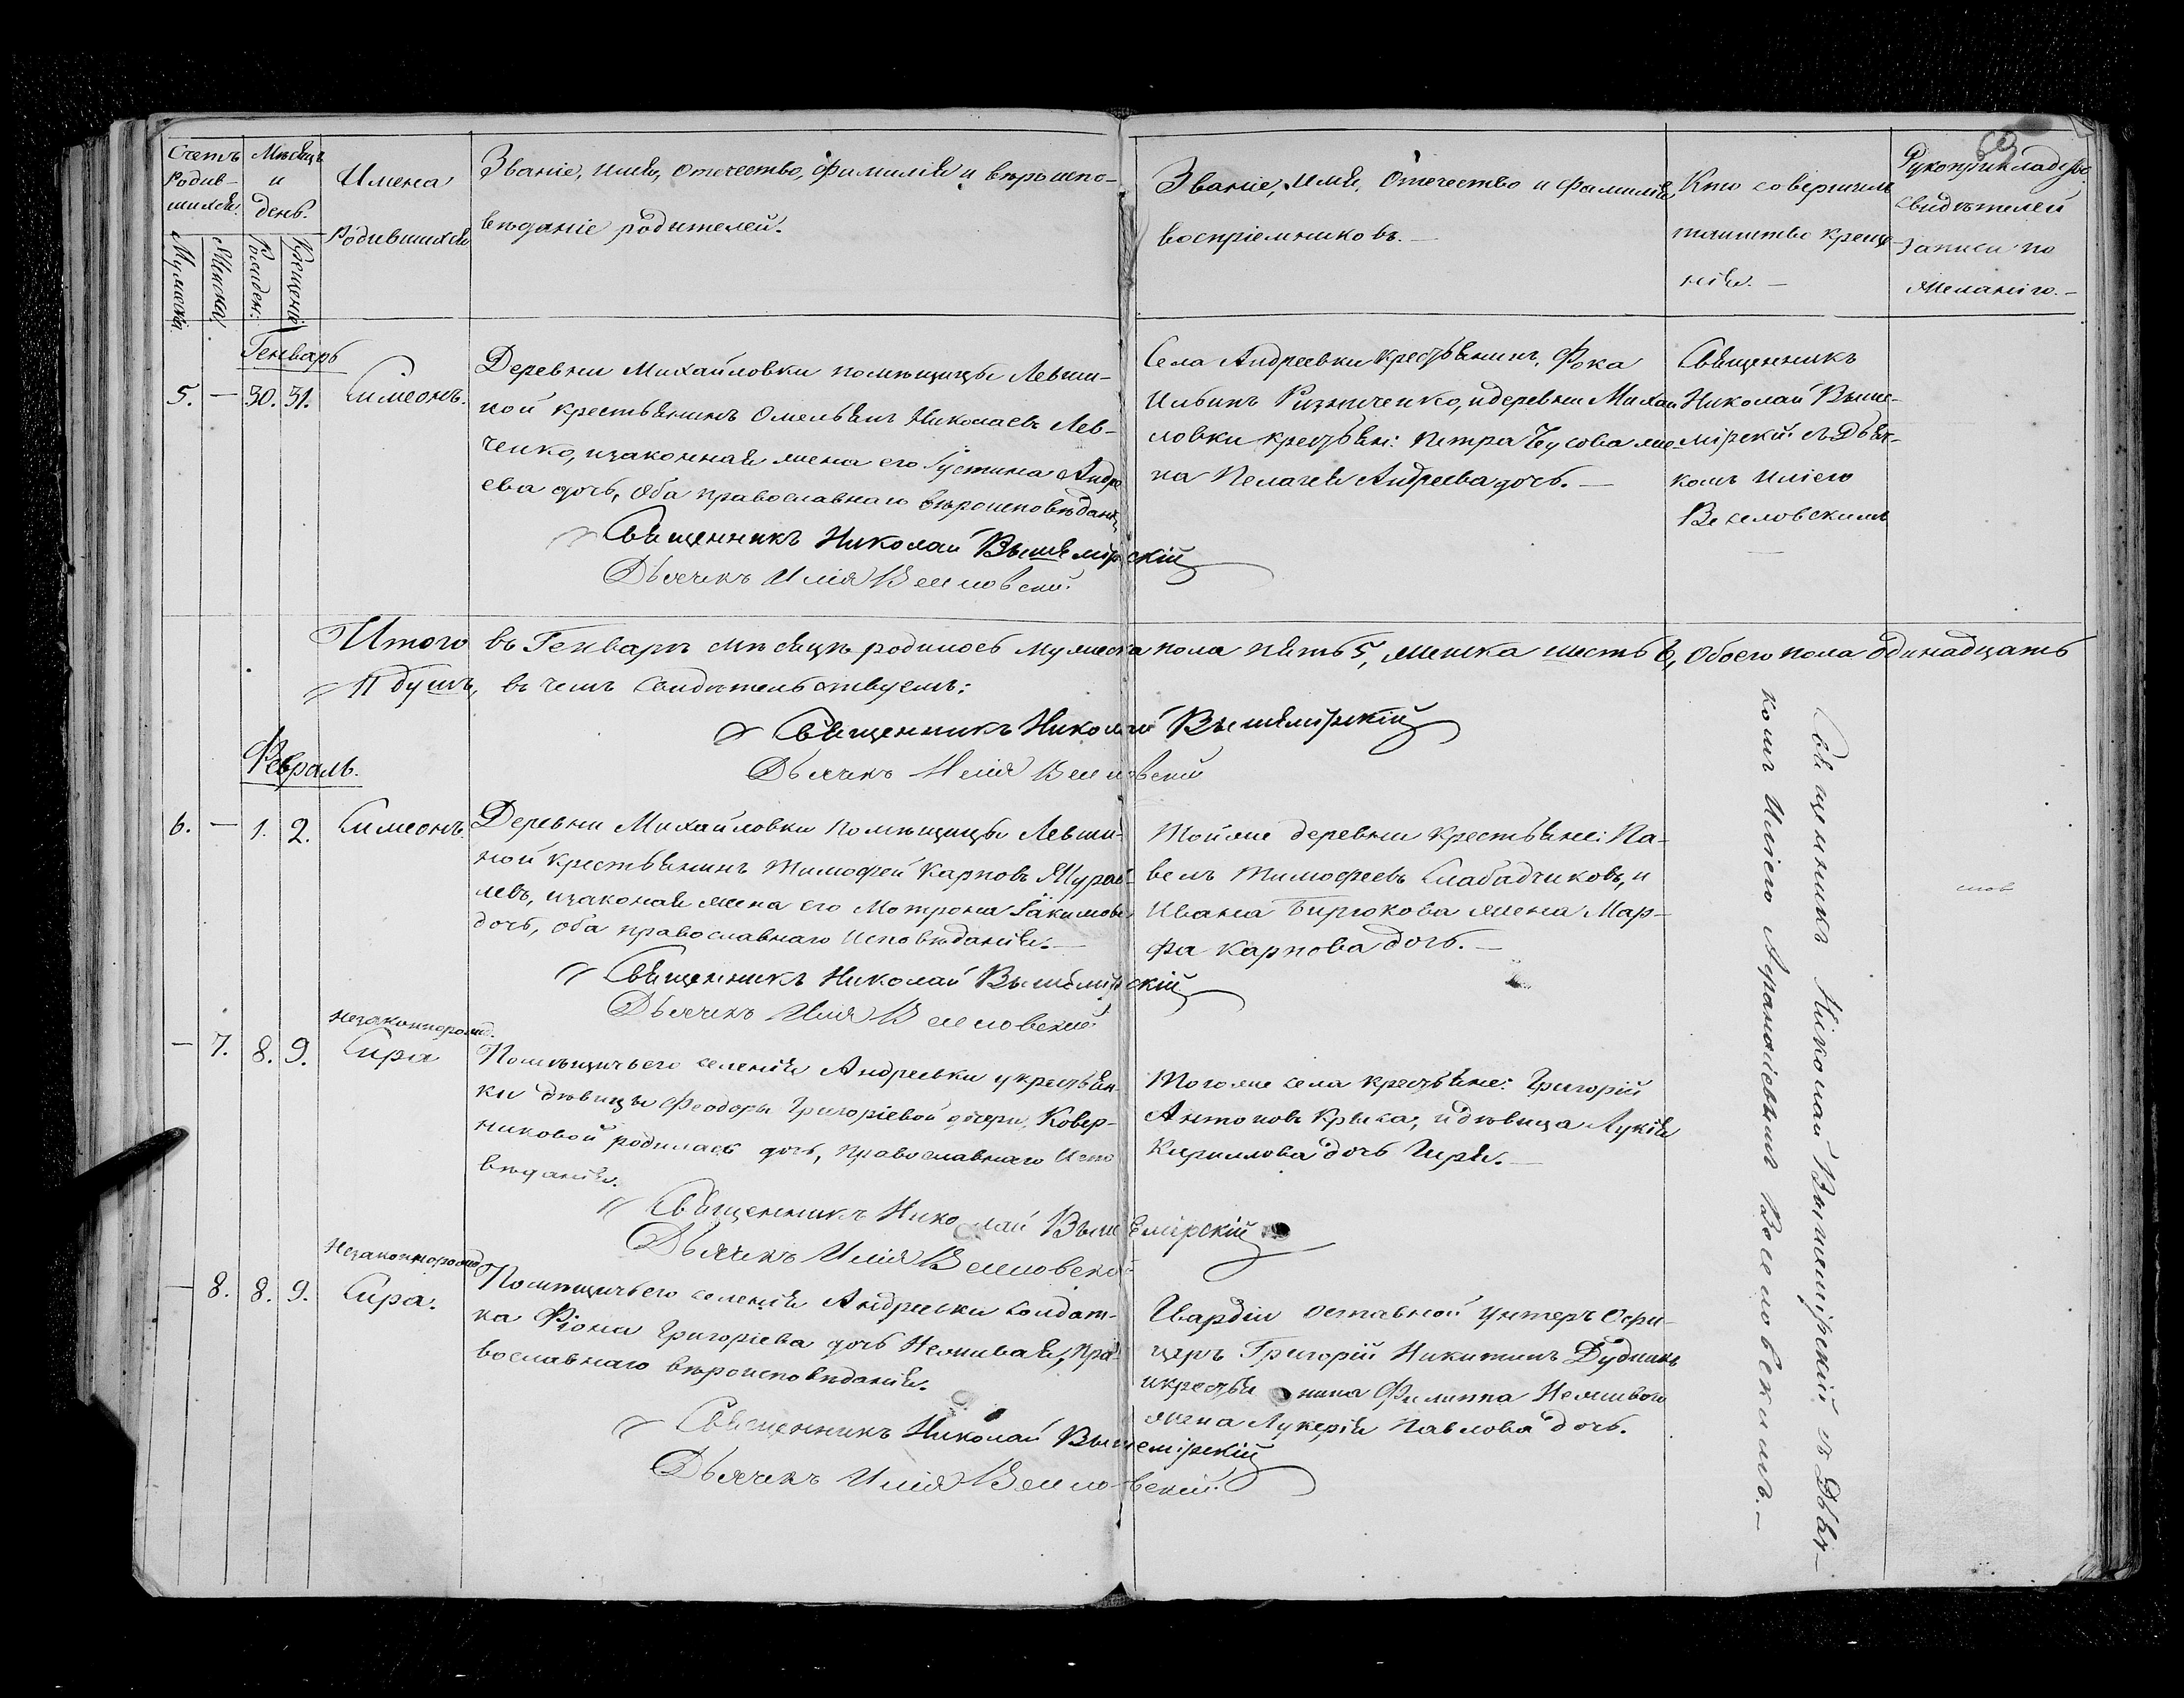 69
Счетъ
Родив-
шихся.
Мужеска.
Женска.
Мѣсяцъ
и
день.
Рожден:
Крещенія
Имена
Родившихся
Званіе, имя, Отечество, фамилія и вѣроиспо-
вѣданіе родителей.
Званіе, Имя, Отечество и фамилія
воспріемниковъ. —
Кто совершилъ
таинство креще-
нія. —
Рукоприкладство
свидѣтелей
записи по
желанію. —
Генварь
5. — 30. 31. Симеонъ.
Деревни Михайловки помѣщицы Левши-
ной крестьянинъ Омельянъ Николаевъ Лев-
ченко, изаконная жена его Густина Андре
ева дочь, Оба православнаго вѣроисповѣданія
Священникъ Николай Вышемірскій
Дьячекъ Илія Веселовскій.
Села Андреевки крестьянинъ Фока
Ильинъ Ризниченко, идеревни Михай
ловки крестьян: Петра Бусова же-
на Пелагея Андреева дочь. —
Священникъ
Николай Выше-
мірскій съ Дьяч-
комъ Иліею
Веселовскимъ
Итого въ Генварѣ мѣсяцѣ родилось мужеска пола пять 5, женска шесть 6, Обоего пола одинадцать
11 душъ, въ чемъ свидѣтельствуемъ:
Священникъ Николай Вышемірскій
Дьячекъ Илія Веселовскій
Февраль.
6. — 1. 2. Симеонъ.
Деревни Михайловки помѣщицы Левши-
ной крестьянинъ Тимофей Карповъ Журав-
левъ, изаконая жена его Мотрона Іакимова
дочь, оба православнаго Исповѣданія. —
Священникъ Николай Вышемірскій
Дьячекъ Илія Веселовскій.
Тойже деревни крестьяне: Па-
велъ Тимофеевъ Слабадчиковъ, и
Ивана Бирюкова жена Мар-
фа Карпова дочь. —
незаконнорожд.
— 7. 8. 9. Сира
Помѣщичьего селенія Андреевки укрестьян-
ки дѣвицы Феодоры Григоріевой дочери, Ковер-
никовой родилась дочь, Православнаго Испо
вѣданія.
Священникъ Николай Вышемірскій
Дьячекъ Илія Веселовскій
Тогоже села крестьяне: Григорій
Антоновъ Крыка, идѣвица Лукія
Кириллова дочь Гиря. —
Незаконнорожд
— 8. 8. 9. Сира.
Помѣщичьего селенія Андреевки солдат-
ка Фіона Григоріева дочь Неживая, Пра-
вославнаго вѣроисповѣданія.
Священникъ Николай Вышемірскій
Дьячекъ Илія Веселовскій.
Гвардіи оставной унтеръ Офи-
церъ Григорій Никитинъ Дудникъ
икрестьянина Филиппа Неживого
жена Лукерія Павлова дочь.
Священникъ Николай Вышемірскій съ Дьяч-
комъ Иліею Афанасіевымъ Веселовскимъ. —